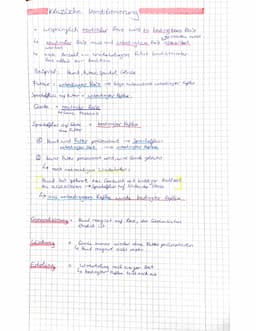 Klassische Konditionierung
• ursprünglich neutraler Reiz wird zu bedingtem Reiz
↳ neutraler Reiz muss mit unbedingtem Reiz
werden
↳ nach Anzahl von Wiederholungen führt konditionierter
Reiz allein zur Reaktion
Beispiel: Hund, Futter, Speichel, Glocke
Futter = unbedingter Reiz → löst unbedingten Reflex
Speichelfluss auf Futter = unbedingter Reflex
Glocke = neutraler Reiz
↳ keine Reaktion
Speichelfluss auf Glocke = bedingter Reflex
ohne Futter
① Hund wird Futter präsentiert → Speichelfluss
unbedingter Reiz → unbedingter Reflex
② bevor Futter präsentiert wird, wird Glocke geläutet
↳ nach mehrmaligem Wiederholen:
Hund hat gelernt, das Geräusch mit
zu assoziieren → Speichelfluss auf Glocke
↳ aus unbedingtem Reflex wurde bedingter Reflex
Generalisierung = Hund reagiert auf Reiz, der Glockenläuten
ähnlich ist
Löschung = Glocke immer wieder ohne Futter präsentieren
↳ Hund reagiert nicht mehr
Erholung = Wiederholung nach langer Zeit
↳ bedingter Reflex